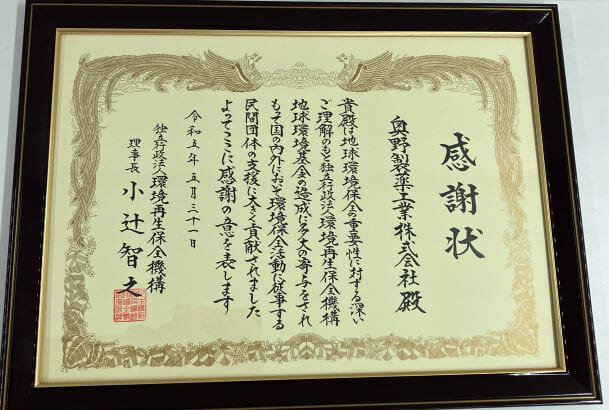 感謝状
奥野製薬工業株式会社殿
貴殿は地球環境保全の重要性に対する深い
ご理解のもと独立行政法人環境再生保全機構
地球環境基金の造成に多大の寄与をされ
もって国の内外において環境保全活動に従事する
民間団体の支援に大きく貢献されました
よってここに感謝の意を表します
令和五年五月三十一日
独立行政法人環境再生保全機構
理事長 小辻智之